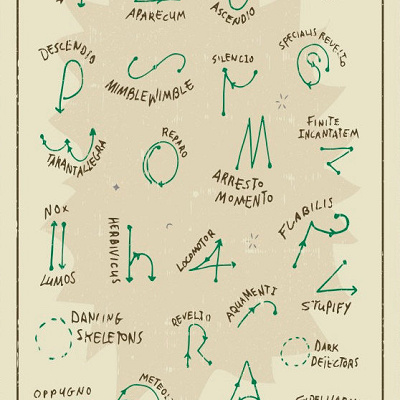 APARECUM
ASCENDIO
DESCENDIO
MIMBLEWIMBLE
SILENCIO
SPECIALIS REVELIO
TARANTALLEGRA
REPARO
ARRESTO
MOMENTO
FINITE
INCANTATEM
NOX
LUMOS
HERBIVICUS
LOCOMOTOR
FLABILIS
STUPIFY
DANCING
SKELETONS
REVELIO
AQUAMENTI
DARK
DETECTORS
OPPUGNO